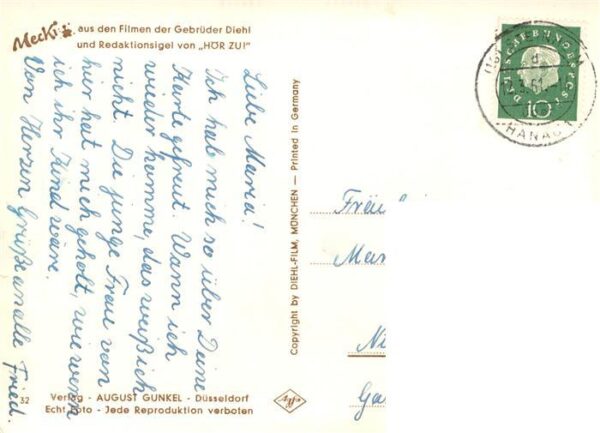 Mecki aus den Filmen der Gebrüder Diehl
und Redaktionsigel von „HÖR ZU!"
Liebe Maria!
Ich hab mich so über Deine
Karte gefreut. Wann ich
wieder komme, das weiß ich
nicht. Die junge Frau von
hier hat mich geholt, wie wenn
ich ihr Kind wäre.
Von Herzen Grüße an alle Fried.
Copyright by DIEHL-FILM, MÜNCHEN — Printed in Germany
32
Verlag - AUGUST GUNKEL - Düsseldorf
Echt Foto - Jede Reproduktion verboten
Agfa
DEUTSCHE BUNDESPOST
10
HANAU
Fräu
Mar
Ni
Ga